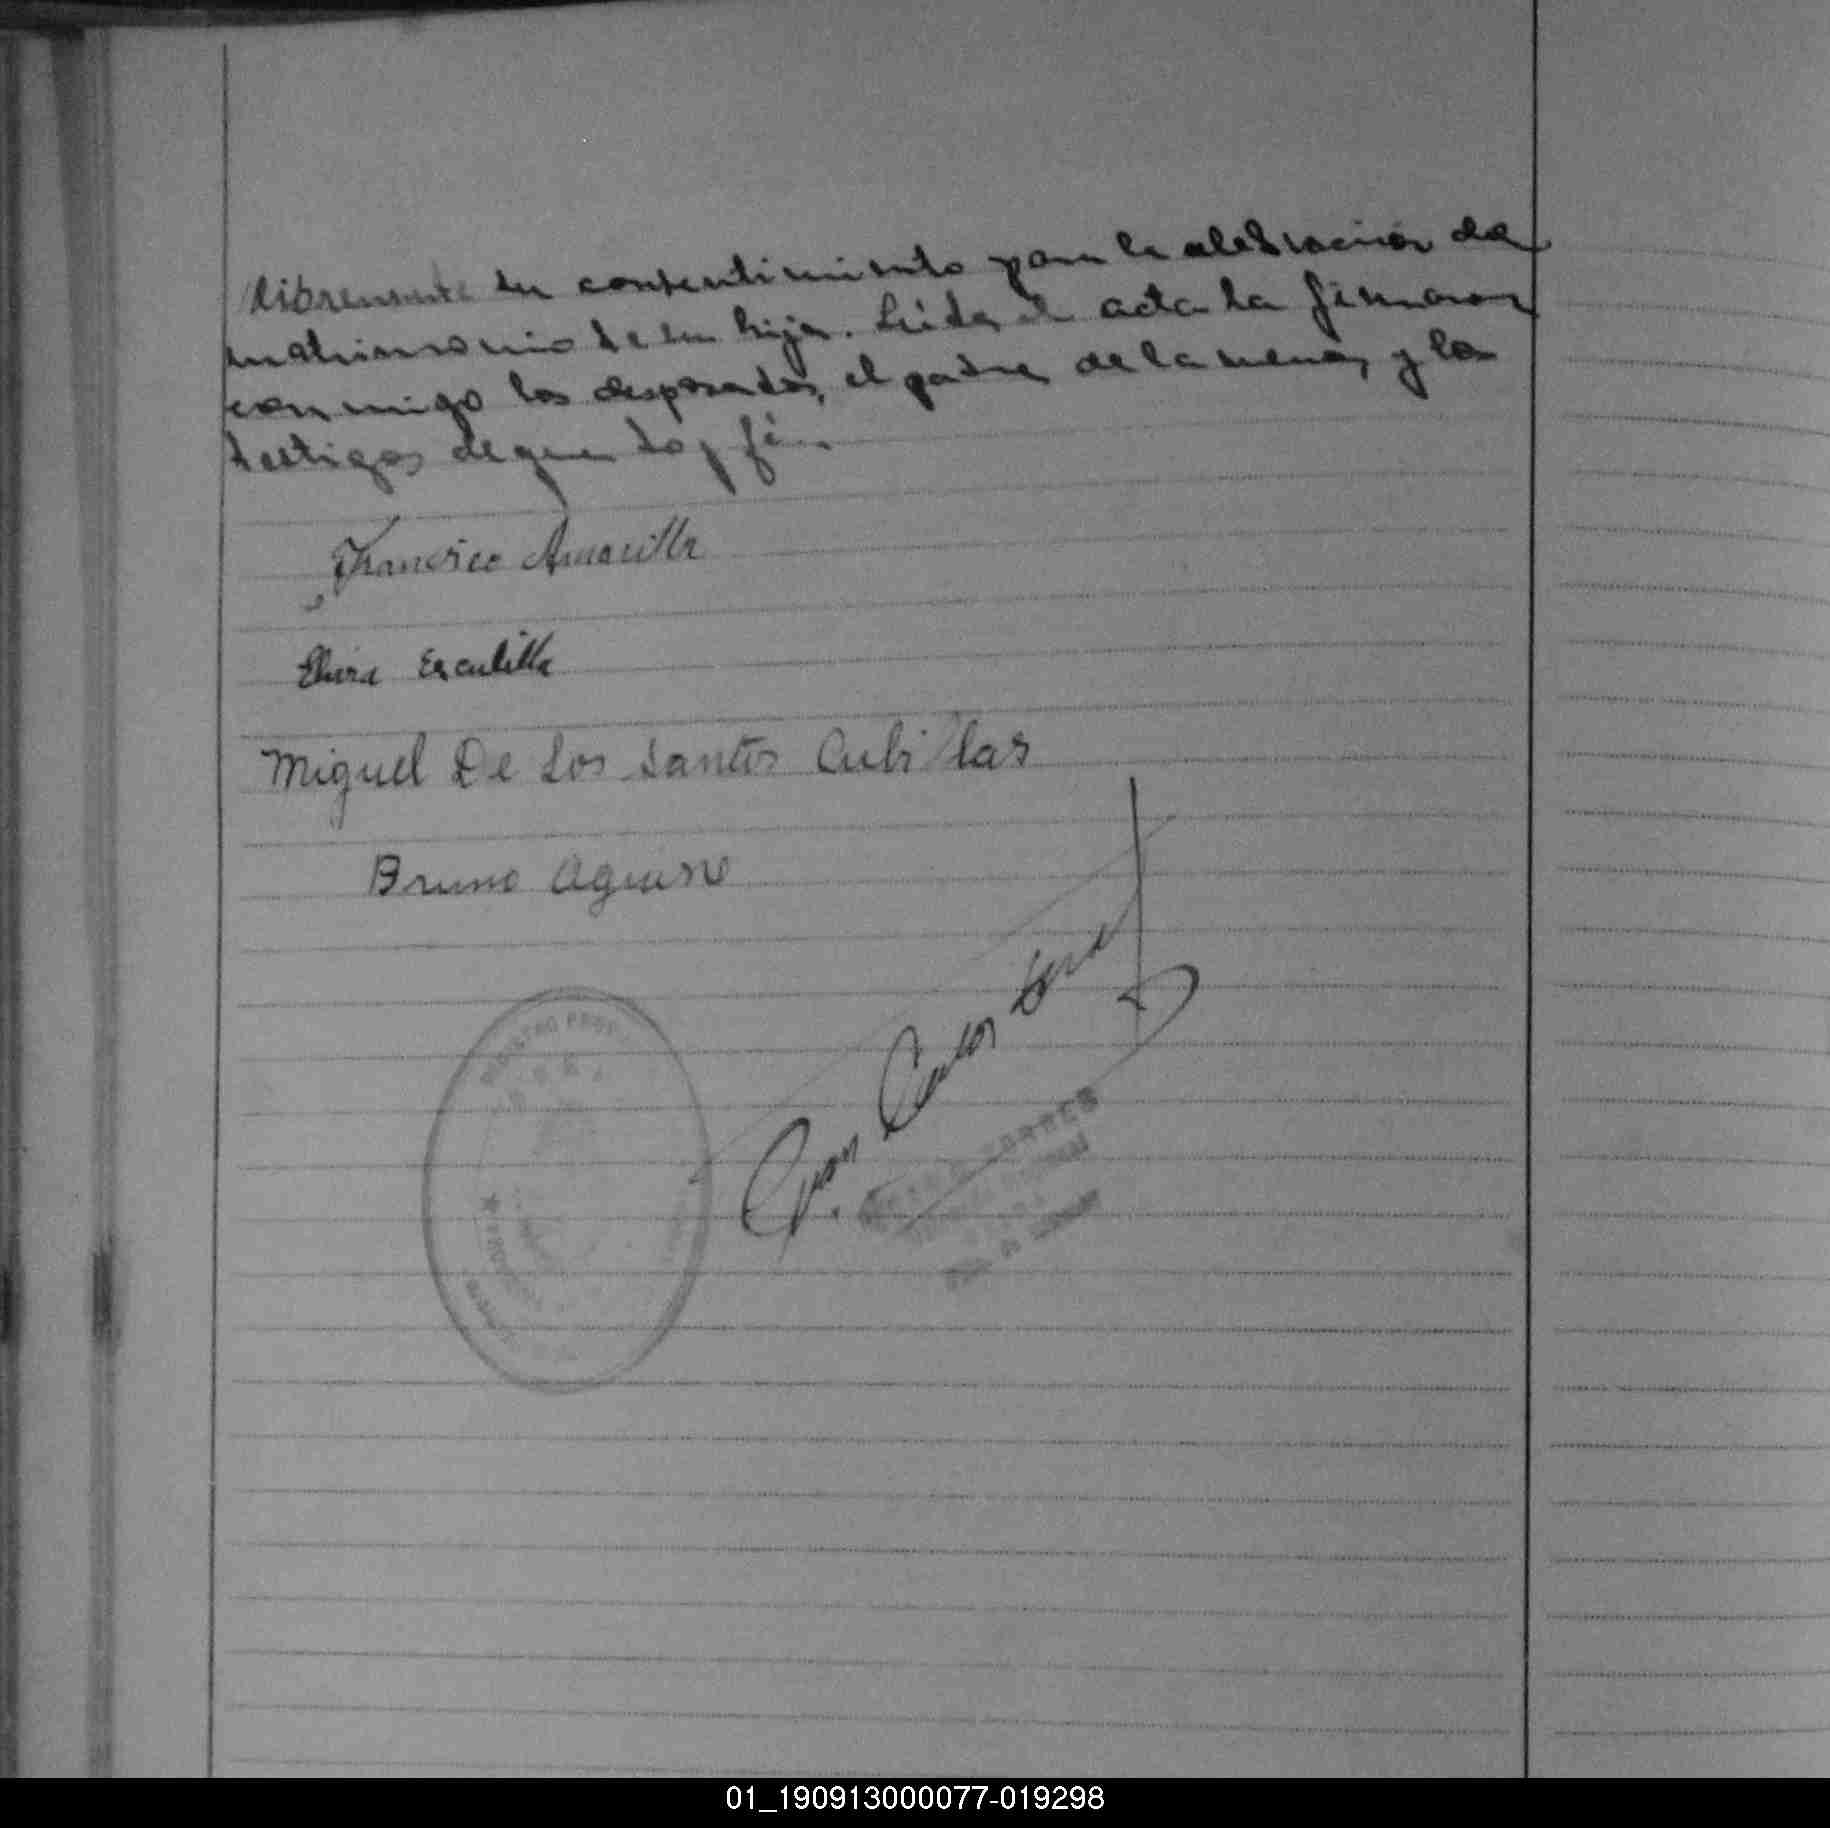 libremente su consentimiento para la celebracion del
matrimonio de su hija. Leida el acta la firmaron
conmigo los desposados, el padre de la menor y los
testigos de que doy fé.
Francisco Amarilla
Elvira
Miguel De Los Santos Cubillas
Bruno Aguirre
REGISTRO PROV
Juan Carlos
01_190913000077-019298